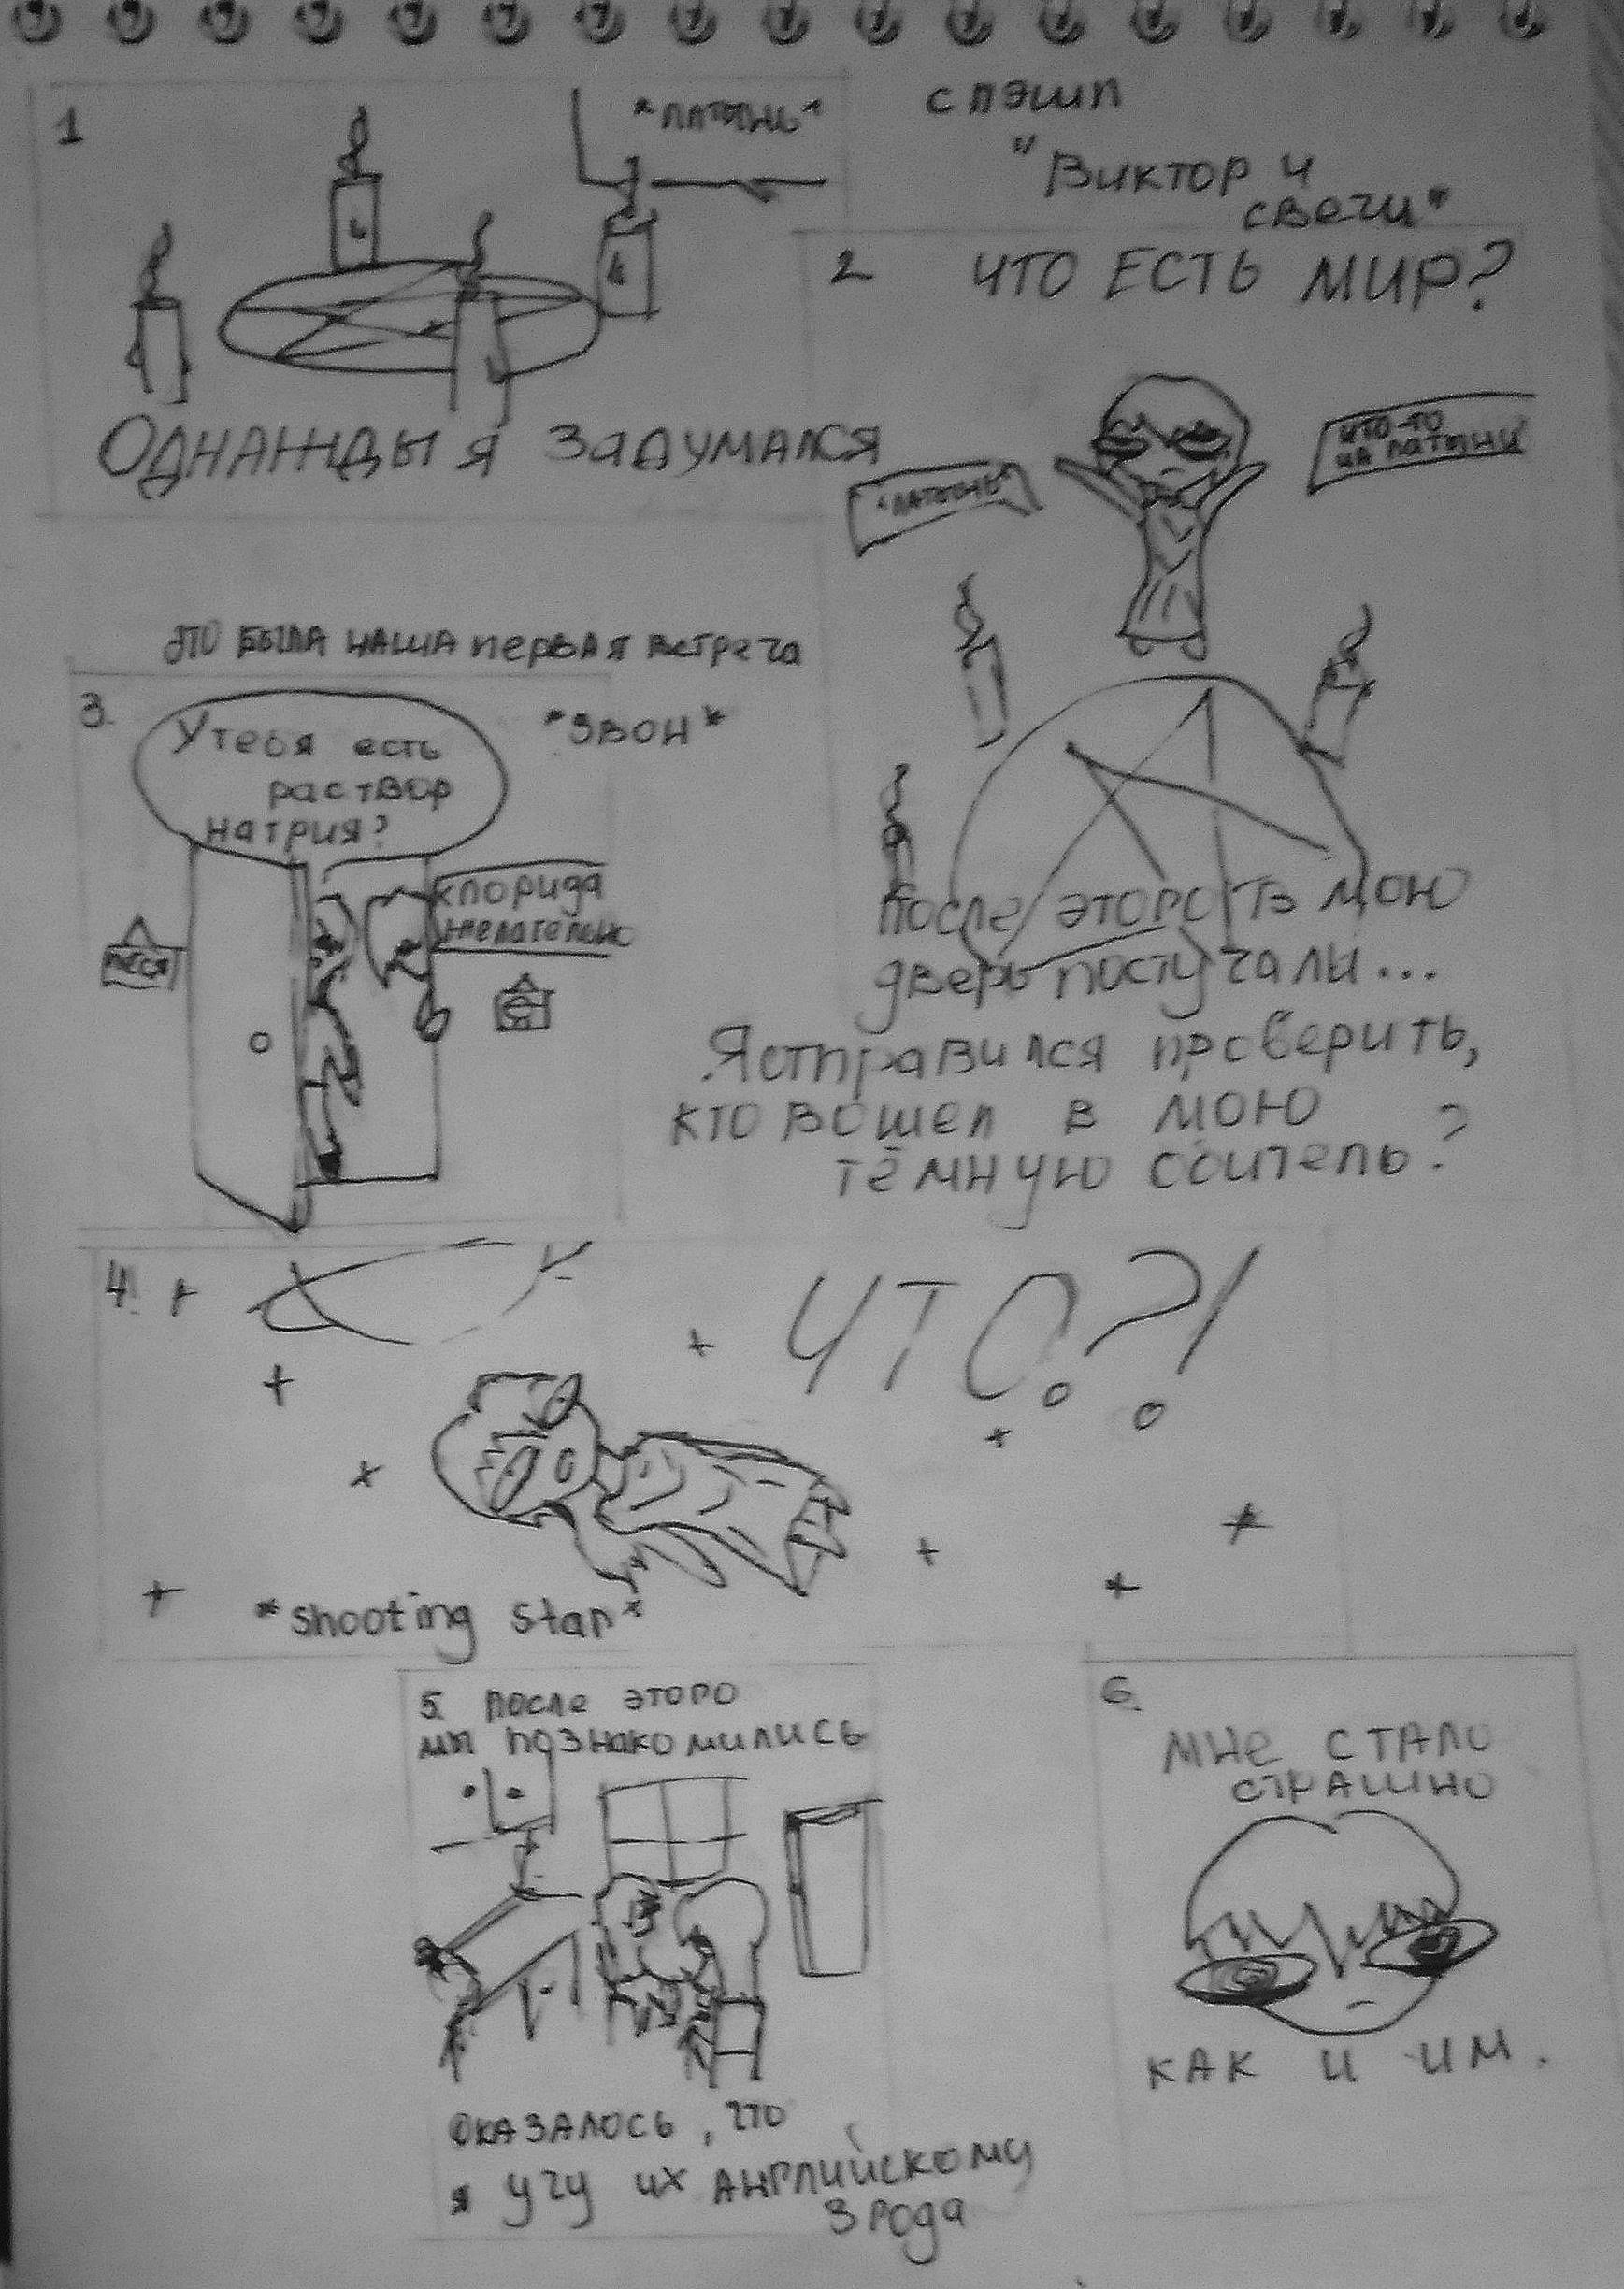 спэшл
"Виктор и
свечи"
1
*латынь*
Однажды я задумался
2
что есть мир?
"латынь"
что-то
на латыни
После этого в мою
дверь постучали...
Я отправился проверить,
кто вошел в мою
тёмную обитель?
это была наша первая встреча
3.
*звон*
У тебя есть
раствор
натрия?
хлорида
желательно
4.
ЧТО?!
*shooting star*
5. после этого
мы познакомились
оказалось, что
я учу их английскому
3 года
6.
мне стало
страшно
как и им.